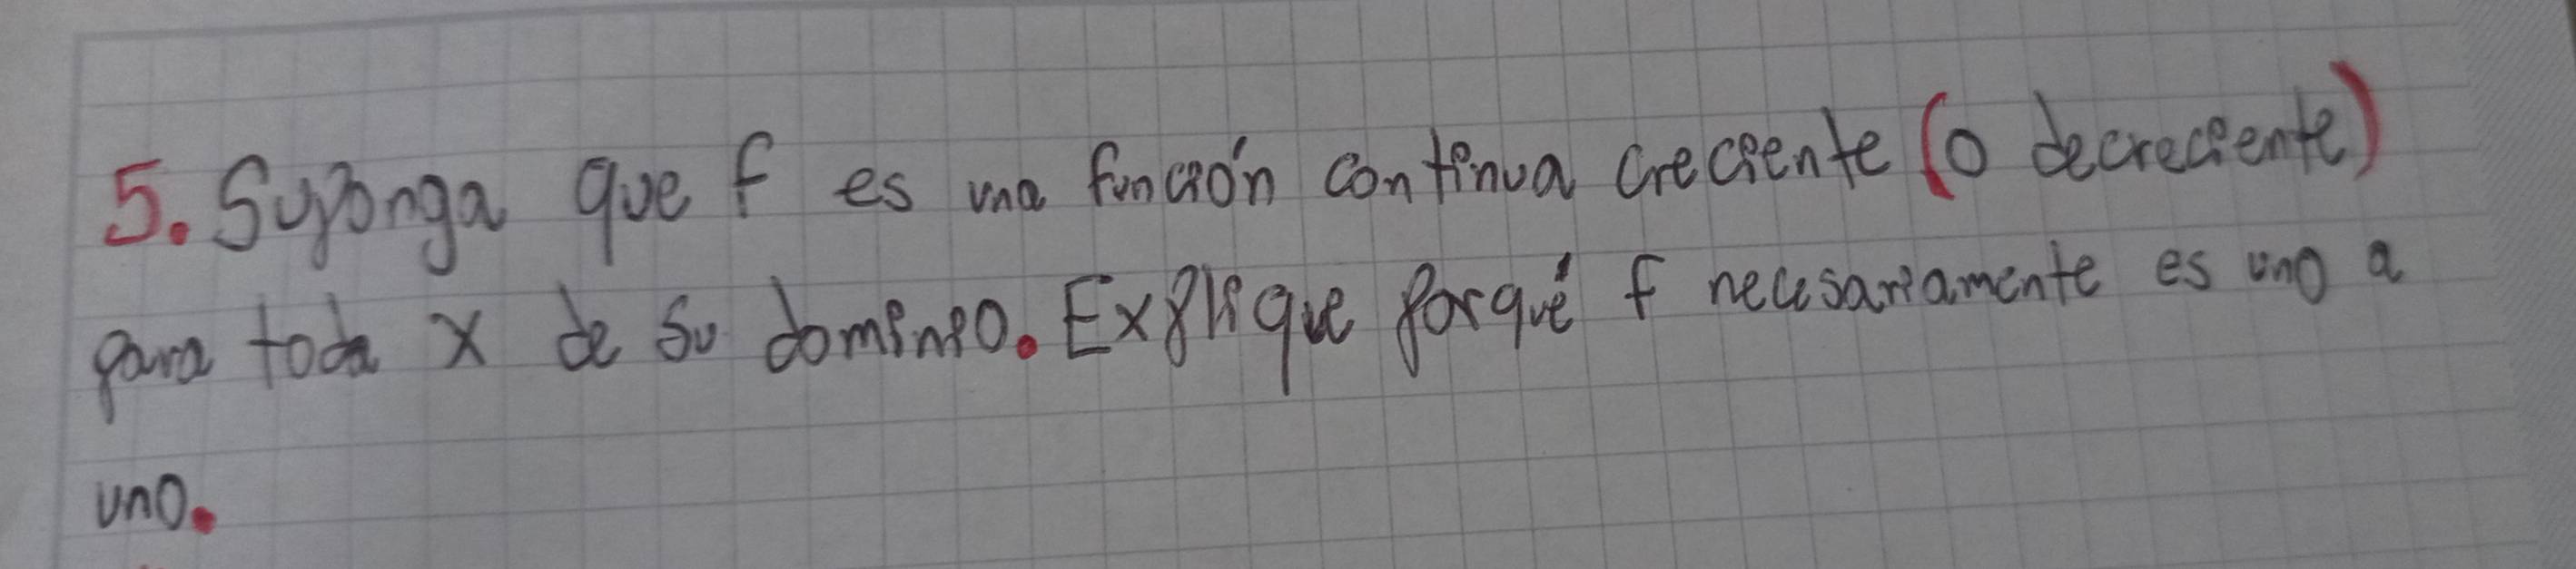 5. Suponga que f es una función continua creciente (o decreciente)
para toda x de su dominio. Explique porqué f necesariamente es uno a
uno.